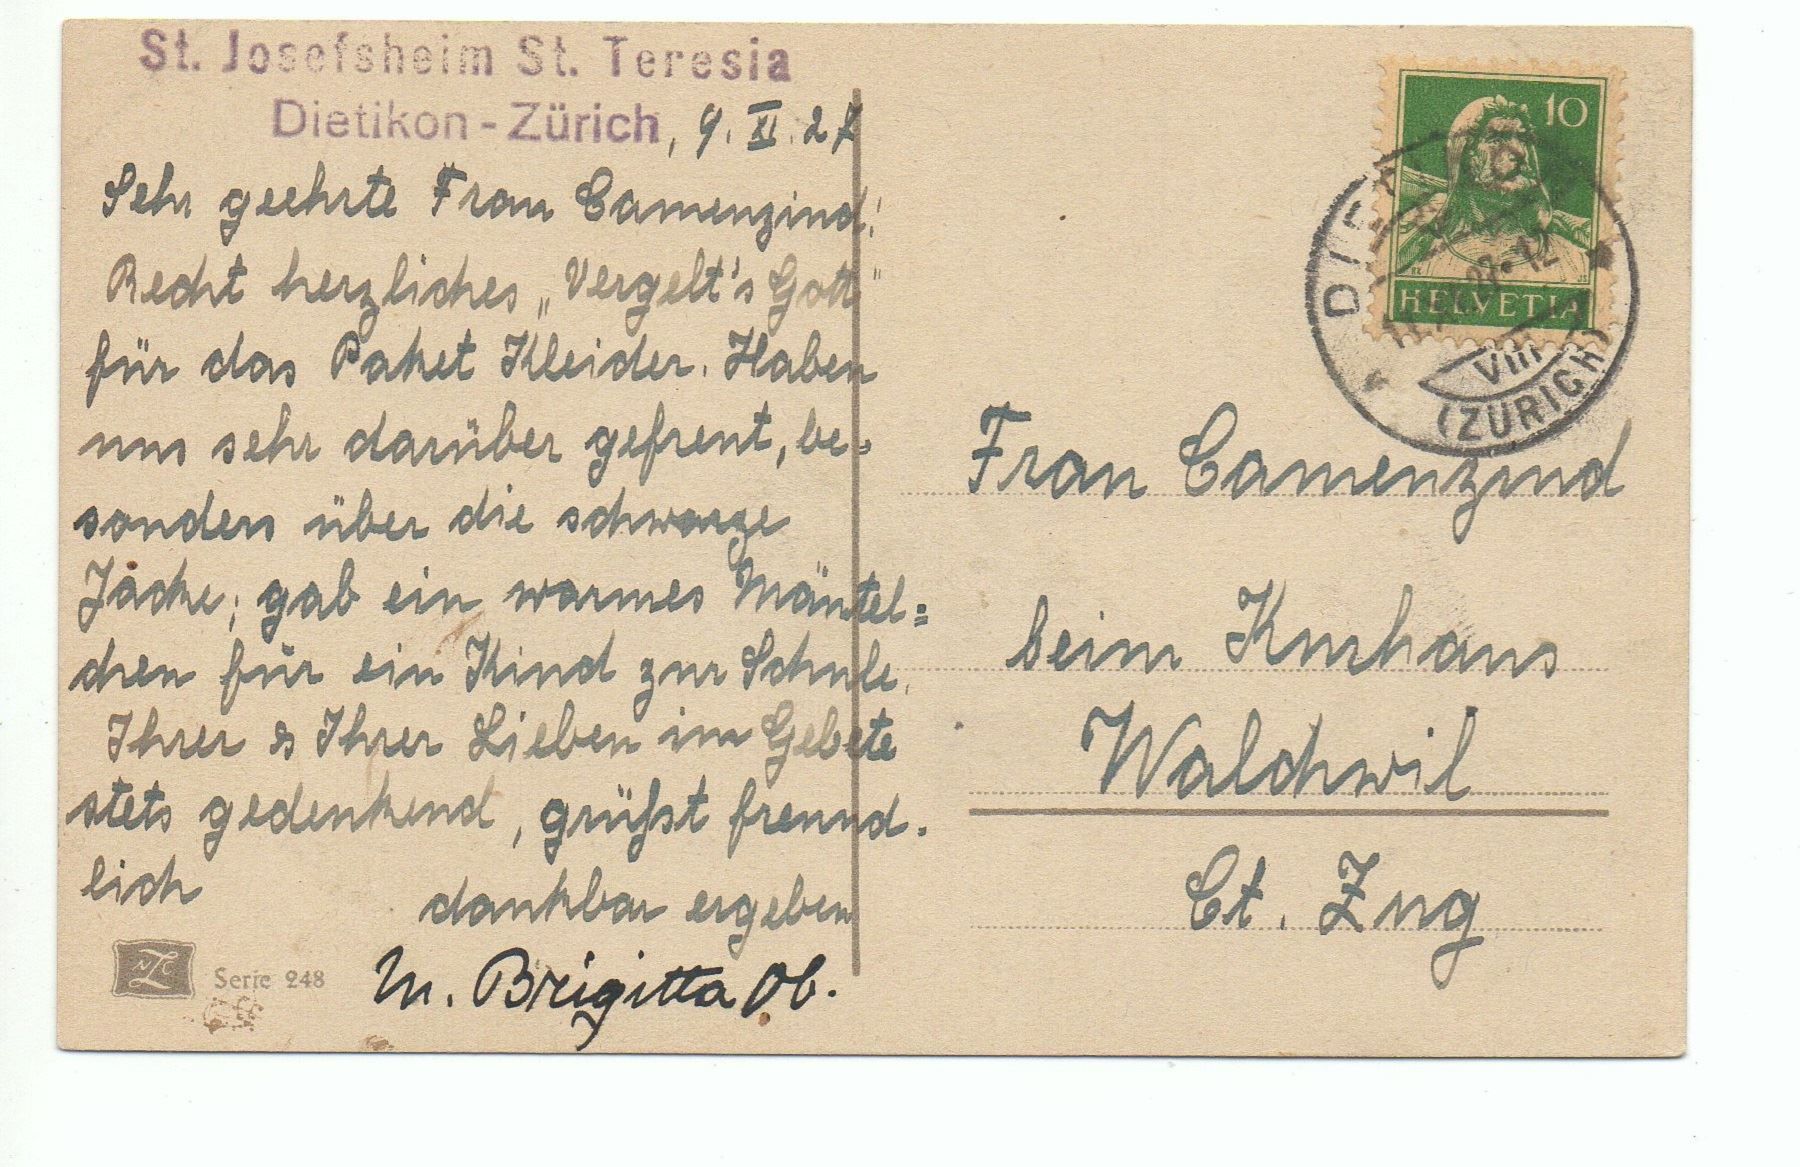 St. Josefsheim St. Teresia
Dietikon - Zürich, 9. XI. 27
Sehr geehrte Frau Camenzind!
Recht herzliches „Vergelt's Gott"
für das Paket Kleider. Haben
uns sehr darüber gefreut, be=
sonders über die schwarze
Jacke; gab ein warmes Mäntel=
chen für ein Kind zur Schule.
Ihrer & Ihrer Lieben im Gebete
stets gedenkend, grüßt freund-
lich
dankbar ergeben
M. Brigitta Ob.
Serie 248
10
HELVETIA
VIII
(ZÜRICH)
Frau Camenzind
beim Kurhaus
Walchwil
Ct. Zug